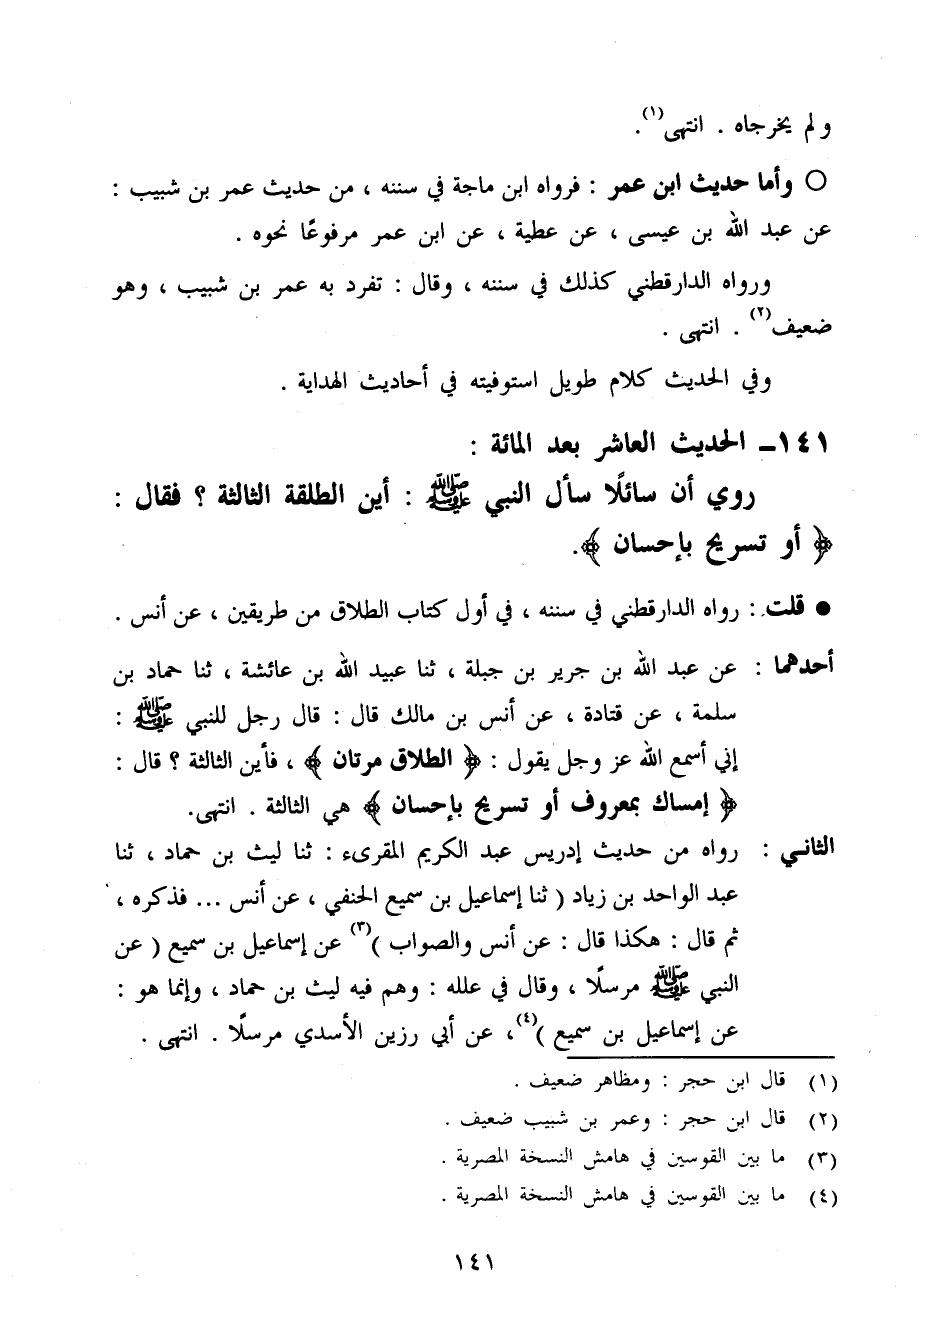 ولم يخرجاه . انتهى(١).
○ وأما حديث ابن عمر : فرواه ابن ماجة في سننه ، من حديث عمر بن شبيب :
عن عبد الله بن عيسى ، عن عطية ، عن ابن عمر مرفوعًا نحوه .
ورواه الدارقطني كذلك في سننه ، وقال : تفرد به عمر بن شبيب ، وهو
ضعيف(٢) . انتهى .
وفي الحديث كلام طويل استوفيته في أحاديث الهداية .
١٤١ـ الحديث العاشر بعد المائة :
روي أن سائلًا سأل النبي ﷺ : أين الطلقة الثالثة ؟ فقال :
﴿ أو تسريح بإحسان ﴾.
● قلت : رواه الدارقطني في سننه ، في أول كتاب الطلاق من طريقين ، عن أنس .
أحدهما : عن عبد الله بن جرير بن جبلة ، ثنا عبيد الله بن عائشة ، ثنا حماد بن
سلمة ، عن قتادة ، عن أنس بن مالك قال : قال رجل للنبي ﷺ :
إني أسمع الله عز وجل يقول : ﴿ الطلاق مرتان ﴾ ، فأين الثالثة ؟ قال :
﴿ إمساك بمعروف أو تسريح بإحسان ﴾ هي الثالثة . انتهى.
الثاني : رواه من حديث إدريس عبد الكريم المقرىء : ثنا ليث بن حماد ، ثنا
عبد الواحد بن زياد ( ثنا إسماعيل بن سميع الحنفي ، عن أنس ... فذكره ،
ثم قال : هكذا قال : عن أنس والصواب )(٣) عن إسماعيل بن سميع ( عن
النبي ﷺ مرسلًا ، وقال في علله : وهم فيه ليث بن حماد ، وإنما هو :
عن إسماعيل بن سميع )(٤)، عن أبي رزين الأسدي مرسلًا . انتهى .
(١) قال ابن حجر : ومظاهر ضعيف .
(٢) قال ابن حجر : وعمر بن شبيب ضعيف .
(٣) ما بين القوسين في هامش النسخة المصرية .
(٤) ما بين القوسين في هامش النسخة المصرية .
١٤١